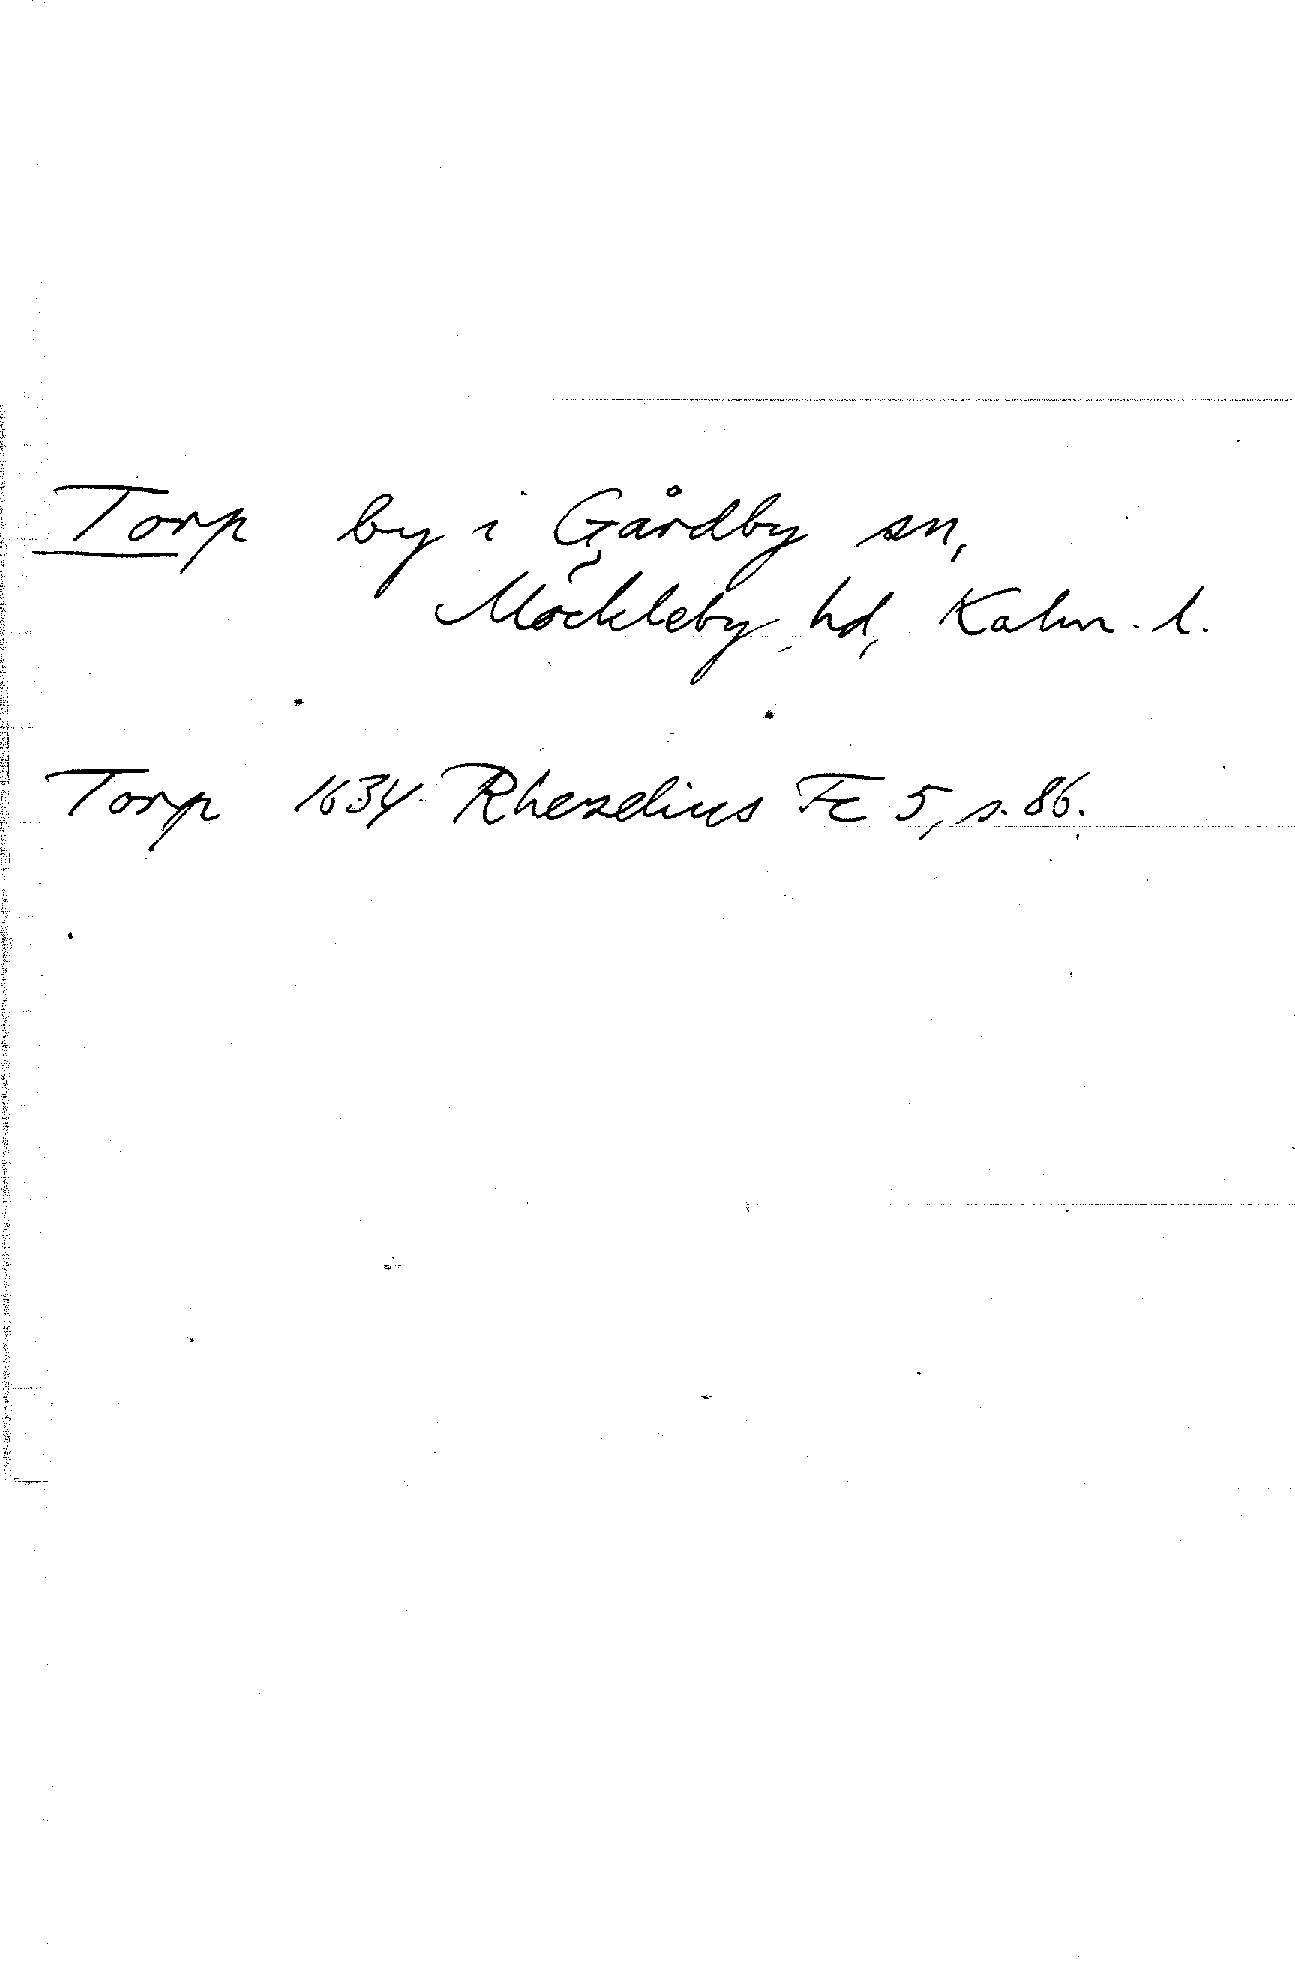 Torp by i Gårdby sn,
Möckleby hd, Kalm. l.
Torp 1634 Rhezelius Fc 5, s. 86.